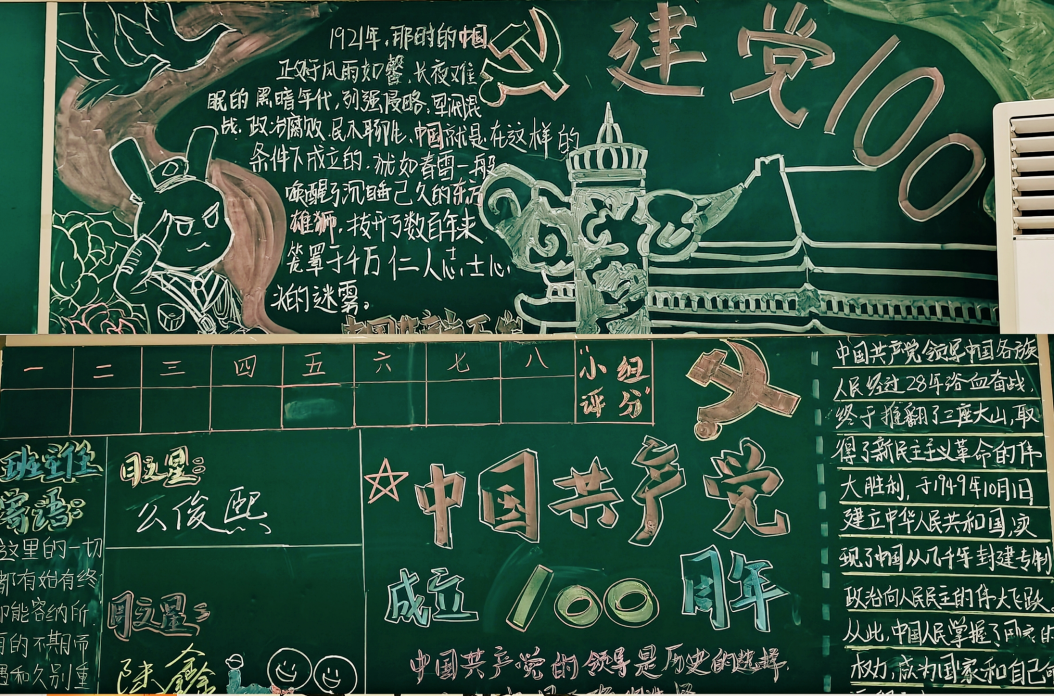 1921年,那时的中国
正好风雨如磐,长夜难
眠的黑暗年代,列强侵略,军阀混
战,政治腐败,民不聊生,中国就是在这样的
条件下成立的,犹如春雷一般
唤醒了沉睡已久的东方
雄狮,拨开了数百年来
笼罩于千万仁人志士心
头的迷雾。
建党100
一 二 三 四 五 六 七 八
"小组
评分"
班主任
寄语:
这里的一切
都有始有终
却能容纳所
有的不期而
遇和久别重
月之星:
么俊熙
周之星:
陈鑫
中国共产党
成立100周年
中国共产党的领导是历史的选择,
中国共产党领导中国各族
人民经过28年浴血奋战,
终于推翻了三座大山,取
得了新民主主义革命的伟
大胜利,于1949年10月1日
建立中华人民共和国,实
现了中国从几千年封建专制
政治向人民民主的伟大飞跃。
从此,中国人民掌握了国家的
权力,成为国家和自己